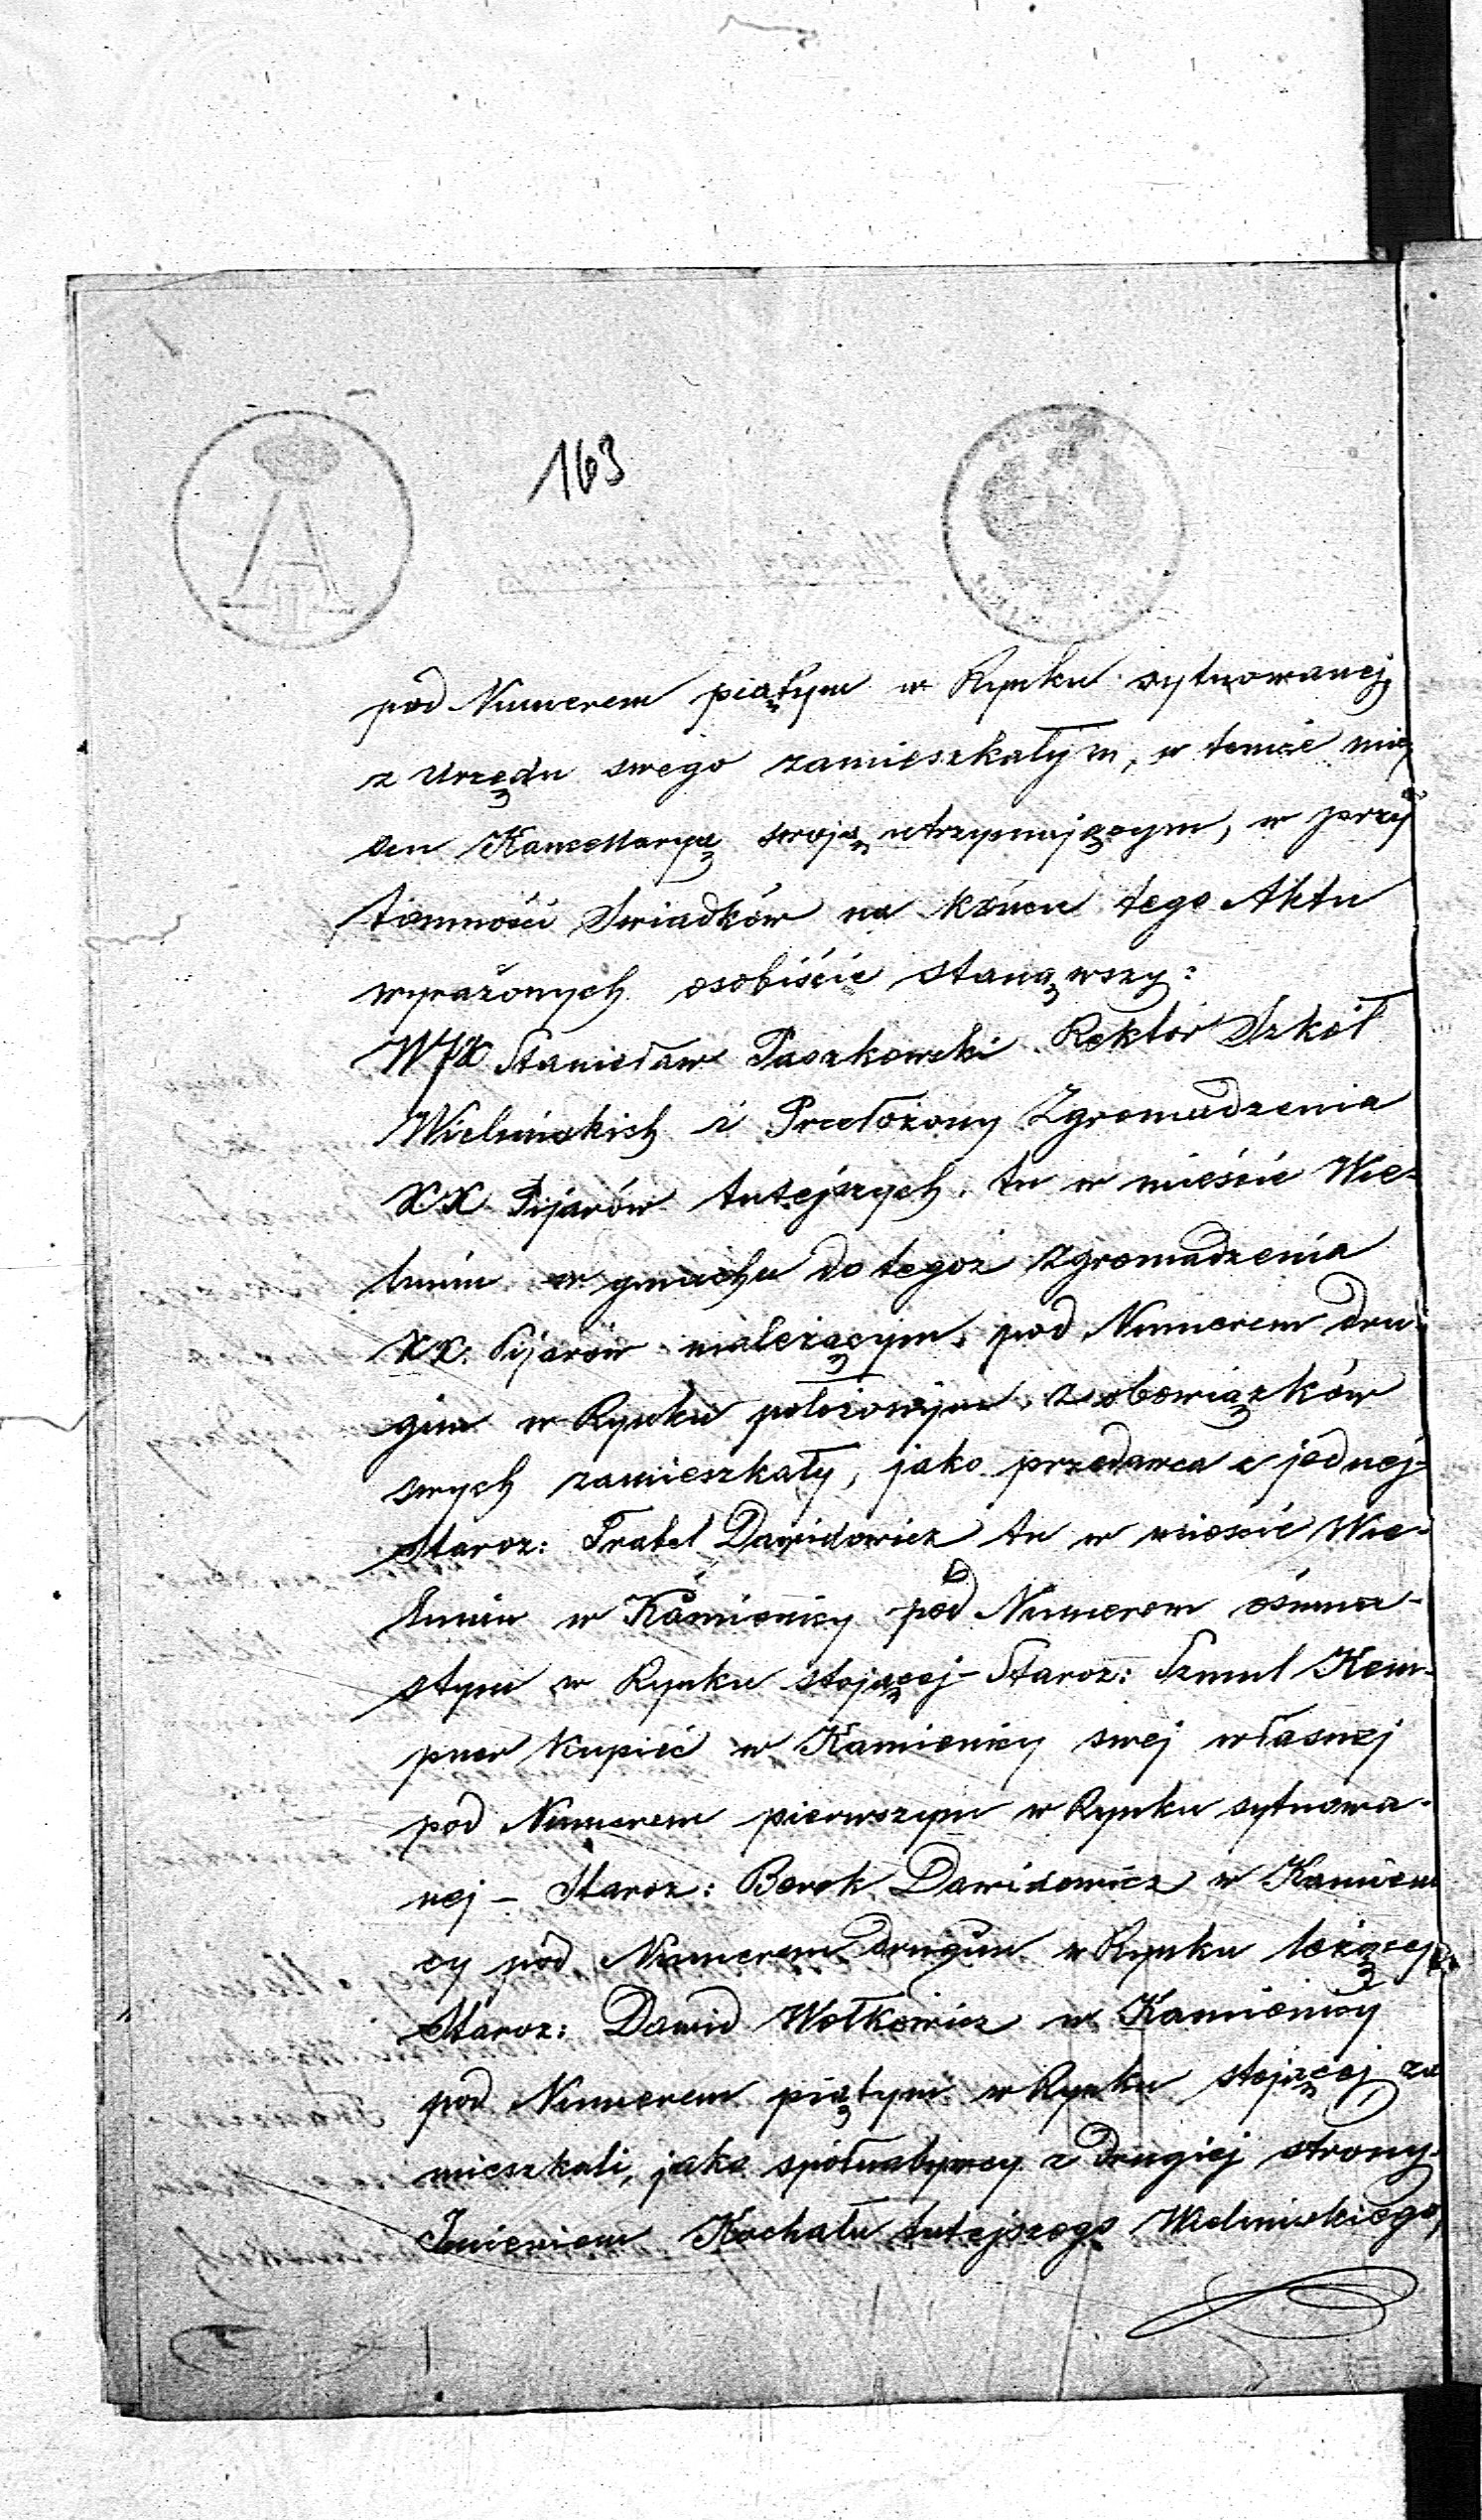 163
pod Numerem piątym w Rynku sytuowanej
z Urzędu swego zamieszkałym, w temże mie
scu Kancellaryą swoją utrzymującym, w przy
tomności Swiadków na końcu tego Aktu
wyrażonych osobiście stanąwszy:
WJX Stanisław Paszkowski Rektor Szkół
Wieluńskich i Przełożony Zgromadzenia
XX Pijarów tutejszych, tu w mieście Wie-
luniu w gmachu do tegoż Zgromadzenia
XX. Pijarów należącym, pod Numerem dru-
gim w Rynku położonym, z obowiązków
swych zamieszkały, jako przedawca z jednej-
Staroz: Frabel Dawidowicz tu w mieście Wie-
luniu w Kamienicy pod Numerem ósmna-
stym w Rynku stojącej - Staroz: Szmul Kem-
pner Kupiec w Kamienicy swej własnej
pod Numerem pierwszym w Rynku sytuowa-
nej - Staroz: Berek Dawidowicz w Kamieni
cy pod Numerem drugim w Rynku leżącej
Staroz: Dawid Wołkowicz w Kamienicy
pod Numerem piątym w Rynku stojącej za
mieszkali, jako spółnabywcy z drugiej strony.
Imieniem Kachału tutejszego Wieluńskiego,